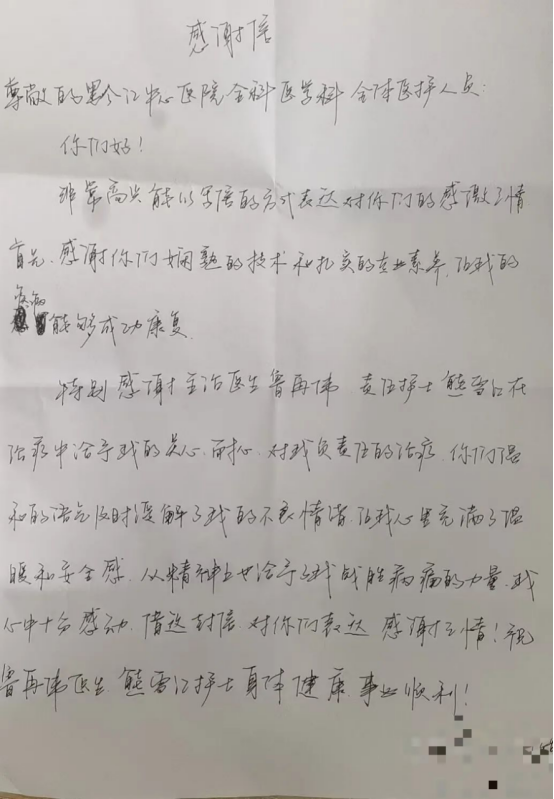 感谢信
尊敬的黔江中心医院全科医学科全体医护人员:
你们好!
非常高兴能以写信的方式表达对你们的感激之情
首先,感谢你们娴熟的技术和扎实的专业素养,让我的
疾病
能够成功康复.
特别感谢主治医生鲁再伟 责任护士熊雪江在
治疗中给予我的关心、耐心、对我负责任的治疗,你们温
和的语气及时缓解了我的不良情绪,让我心里充满了温
暖和安全感,从精神上也给予了我战胜病痛的力量,我
心中十分感动,借这封信,对你们表达感谢之情!祝
鲁再伟医生,熊雪江护士身体健康 事业顺利!